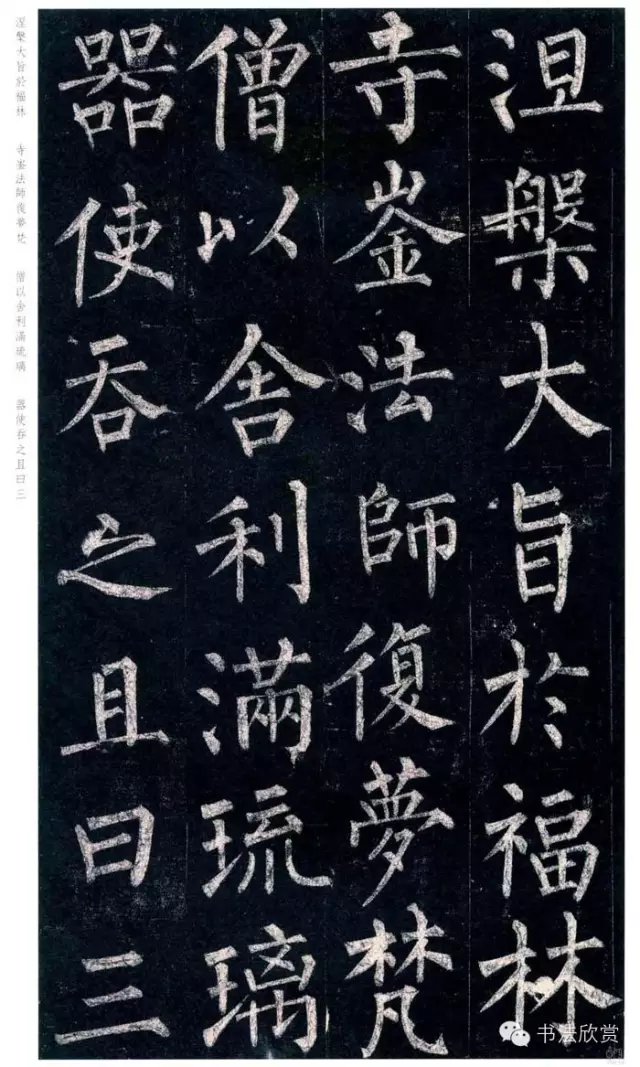 涅槃大旨於福林
寺崟法師復夢梵
僧以舍利滿琉璃
器使吞之且曰三
涅槃大旨於福林 寺崟法師復夢梵 僧以舍利滿琉璃 器使吞之且曰三
书法欣赏